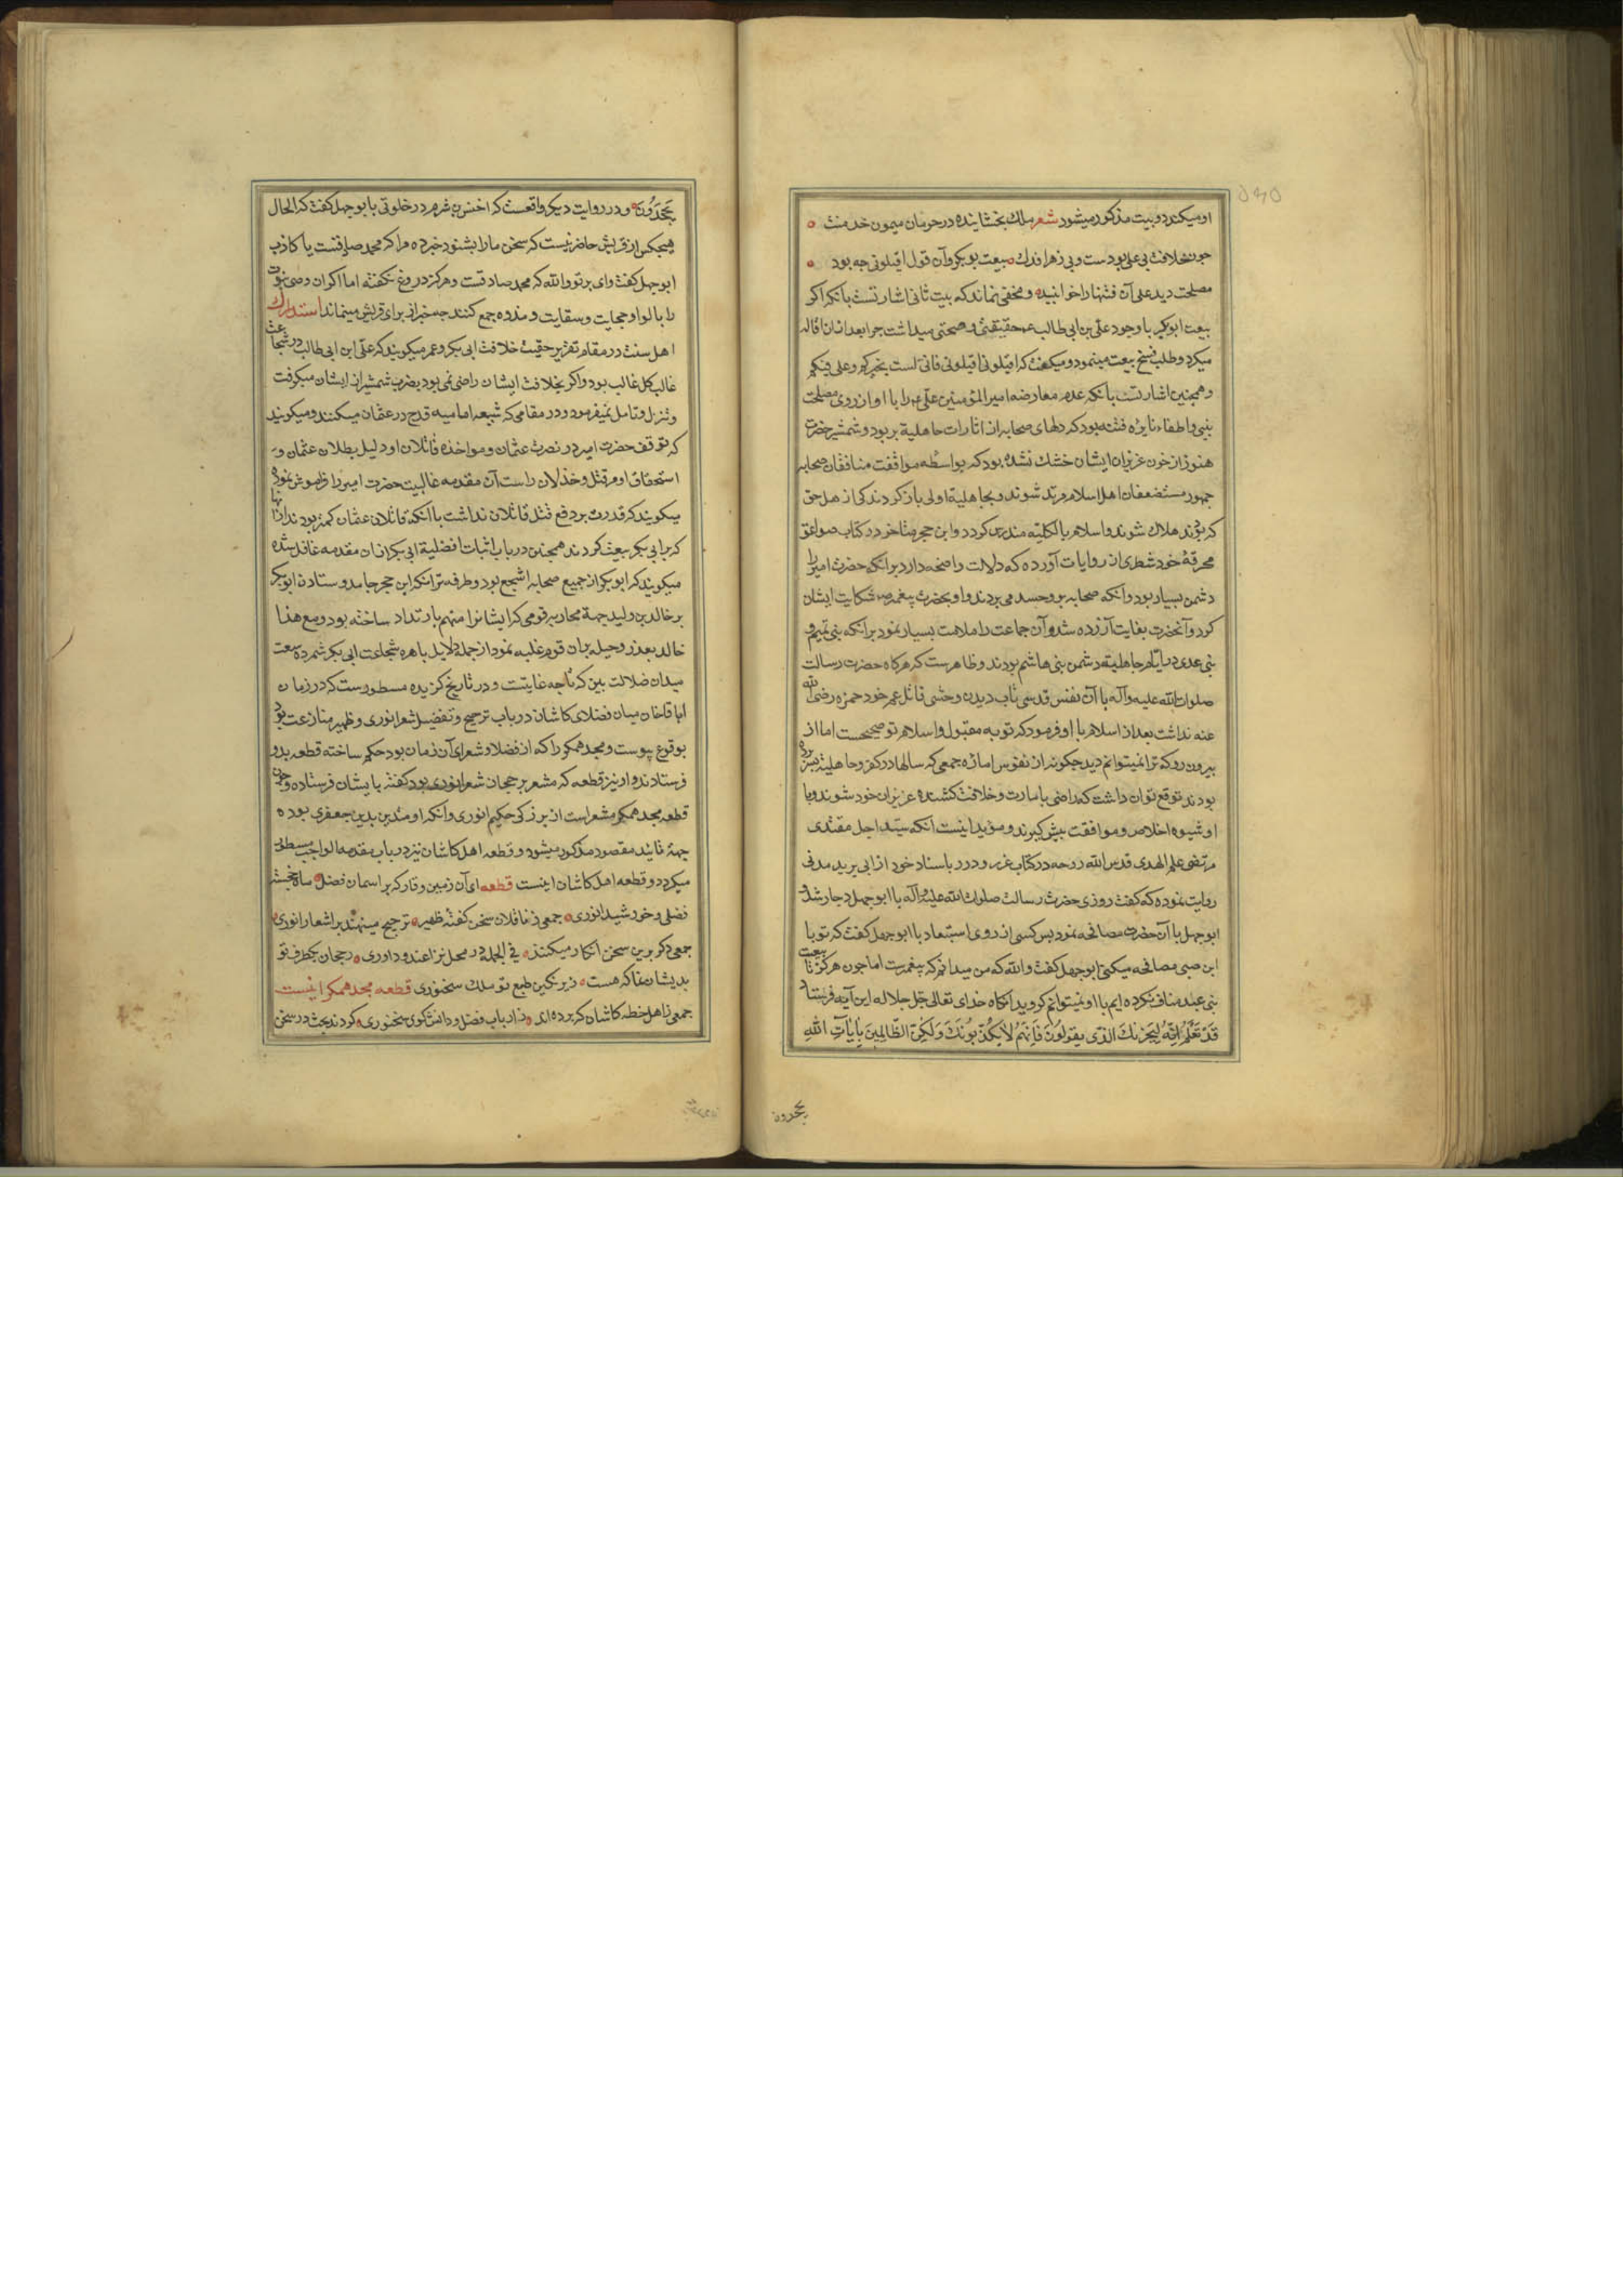 او میکند دو بیت مذکور میشود شعر ملك بخشاینده در حرمان میمون خدمتت
چون خلافت بی علی بودست و بی زهرا فدك بیعت بوبکر و آن قول اقیلونی چه بود
مصلحت دید علی آن فتنها را خوابنیده و مخفی نماند که بیت ثانی اشارتست بآنکه اکر
بیعت ابوبکر با وجود علی بن ابی طالب ع حقیقتی و صحتی میداشت چرا بعد ازان اقاله
میکرد و طلب فسخ بیعت مینمود و میکفت که اقیلونی اقیلونی فانی لست بخیرکم و علی فیکم
و همچنین اشارتست بآنکه عدم معارضه امیر المؤمنین علی ع را با او از روی مصلحت
بینی و اطفاء نایره فتنه بود که دلهای صحابه از اثارات جاهلیة پر بود و شمشیر حضرت
هنوز از خون عزیزان ایشان خشك نشده بود که بواسطه موافقت منافقان صحابه
جمهور مستضعفان اهل اسلام مرتد شوند و بجاهلیة اولی باز کردند کی از اهل حق
که بودند هلاك شوند و اسلام بالکلیه مندرس کردد و ابن حجر متاخر در کتاب صواعق
محرقه خود شطری از روایات آورده که دلالت واضحه دارد برانکه حضرت امیر را
دشمن بسیار بود و انکه صحابه برو حسد می بردند و او بحضرت پیغمبر ص شکایت ایشان
کرد و آنحضرت بغایت آزرده شد و آن جماعت را ملامت بسیار نمود برانکه بنی تمیم و
بنی عدی در ایام جاهلیة دشمن بنی هاشم بودند و ظاهرست که هرکاه حضرت رسالت
صلوات الله علیه و آله با آن نفس قدسی تاب دیدن وحشی قاتل عم خود حمزه رضی الله
عنه نداشت بعد از اسلام با او فرمود که توبه مقبول و اسلام تو صحیحست اما از
بیرون رو که ترا نمیتوانم دید چکونه از نفوس اماره جمعی که سالها در کفر و جاهلیة بسر برده
بودند توقع توان داشت که راضی بامارت و خلافت کشنده عزیزان خود شوند و با
او شیوه اخلاص و موافقت پیش کیرند و مؤید اینست انکه سید اجل مقتدی
مرتضی علم الهدی قدس الله روحه در کتاب غرر و درر باسناد خود از ابی یرید مدنی
روایت نموده که کفت روزی حضرت رسالت صلوات الله علیه و آله با ابوجهل دچار شد و
ابوجهل با آن حضرت مصافحه نمود پس کسی از روی استبعاد با ابوجهل کفت که تو با
ابن صبی مصافحه میکنی ابوجهل کفت والله که من میدانم که پیغمبرست اما چون هرکز تا بیعت
بنی عبد مناف نکرده ایم با او نمیتوانم کروید انکاه خدای تعالی جل جلاله این آیه فرستاد
قَدْ نَعْلَمُ اِنَّهُ لَیَحْزُنُكَ الَّذی یَقُولُونَ فَاِنَّهُمْ لا یُکَذِّبُونَكَ وَلکِنَّ الظّالِمینَ بِآیاتِ اللّهِ
یجحدون
یَجْحَدُونَ و در روایت دیکر واقعست که اخنس بن شرم در خلوتی با ابوجهل کفت که الحال
هیچکس از قریش حاضر نیست که سخن ما را بشنود خبر ده مرا که محمد صادقست یا کاذب
ابوجهل کفت وای بر تو والله که محمد صادقست و هرکز دروغ نکفته اما اکر ان وصی نبوت
را با لوا و حجابت و سقایت و ندوه جمع کنند چه خبر از برای قریش میماند استدراك
اهل سنت در مقام تقریر حقیت خلافت ابی بکر و عمر میکویند که علی ابن ابی طالب در شجاعت
غالب کل غالب بود و اکر بخلافت ایشان راضی نمی بود بضرب شمشیر از ایشان میکرفت
و تنزل و تامل نمیفرمود و در مقامی که شیعه امامیه قدح در عثمان میکنند و میکویند
که توقف حضرت امیر در نصرت عثمان و مواخذه قاتلان او دلیل بطلان عثمان و
استحقاق او مر قتل و خذلان راست آن مقدمه غالبیت حضرت امیر را فراموش نموده
میکویند که قدرت بر دفع قتل قاتلان نداشت با انکه قاتلان عثمان کمتر بودند از انها
که با ابی بکر بیعت کردند همچنین در باب اثبات افضلیة ابی بکر ازان مقدمه غافل شده
میکویند که ابوبکر از جمیع صحابه اشجع بود و طرفه تر انکه ابن حجر جامد وستادن ابوبکر
بر خالد بن ولید جهة محاربه قومی که ایشانرا متهم بارتداد ساخته بود و مع هذا
خالد بعذر و حیله بران قوم غلبه نمود از جمله دلایل باهره شجاعت ابی بکر شمرده سعت
میدان ضلالت بین که تا چه غایتست و در تاریخ کزیده مسطورست که در زمان
اباقاخان میان فضلای کاشان در باب ترجیح و تفضیل شعر انوری و ظهیر منازعت بود
بوقوع پیوست و مجد همکر را که از فضلا و شعرای آن زمان بود حکم ساخته قطعه بدو
فرستادند و او نیز قطعه که مشعر بر رجحان شعر انوری بود کفته بایشان فرستاده و چون
قطعه مجد همکر مشعر است از بزرکی حکیم انوری و آنکه او متدین بدین جعفری بوده
جهة تایید مقصود مذکور میشود و قطعه اهل کاشان نیز در باب مقدمه الواجب مسطور
میکردد و قطعه اهل کاشان اینست قطعه ای آن زمین وقار که بر اسمان فضل ماه خجسته
فضلی و خورشید انوری جمعی ز ناقلان سخن کفته ظهیر ترجیح مینهند بر اشعار انوری
جمعی دکر برین سخن انکار میکنند فی الجمله در محل نزاعند و داوری رجحان یکطرف تو
بدیشان نما که هست زیر نکین طبع تو ملك سخنوری قطعه مجد همکر اینست
جمعی ز اهل خطه کاشان که برده اند ز ارباب فضل و دانش کوی سخنوری کردند بحث در سخن